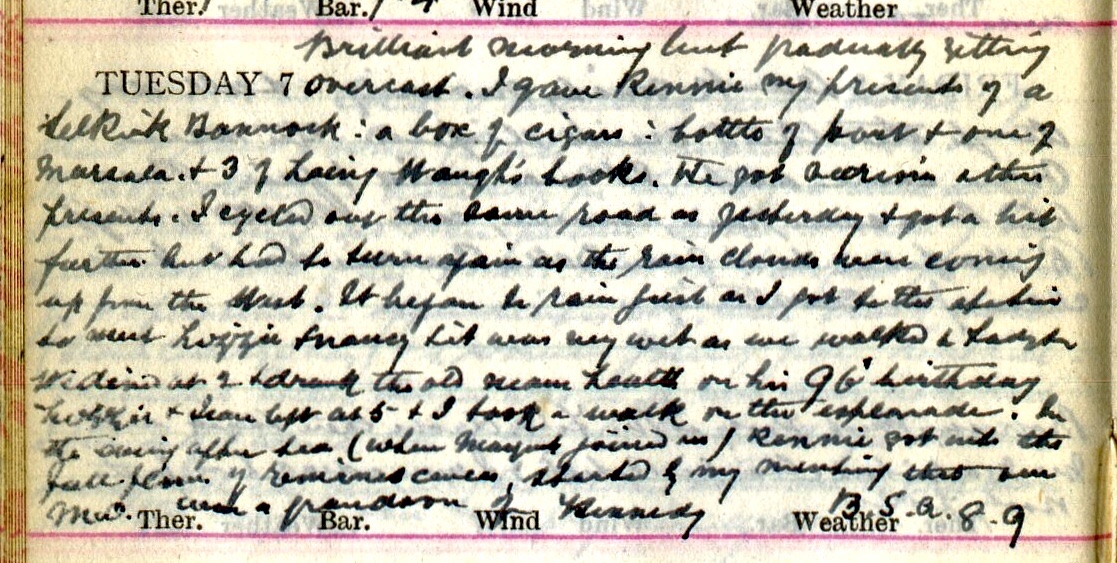 Ther. Bar. Wind Weather
Brilliant morning but gradually getting
TUESDAY 7 overcast. I gave Rennie my presents of a
Selkirk Bannock: a box of cigars: bottle of port & one of
Marsala. & 3 of Laing Waugh's books. He got various other
presents. I cycled out the same road as yesterday & got a bit
further but had to turn again as the rain clouds were coming
up from the West. It began to rain just as I got to the station
to meet Lizzie & Nancy & it was very wet as we walked to
We dined at 2 & drank the old man's health on his 96th birthday
left at 5 & I took a walk on the esplanade. In
the evening after tea (when joined us) Rennie got into the
full flow of reminiscences, started by my mentioning that our
Min. was a grandson of Kennedy B.S.A. 8-9
Ther. Bar. Wind Weather